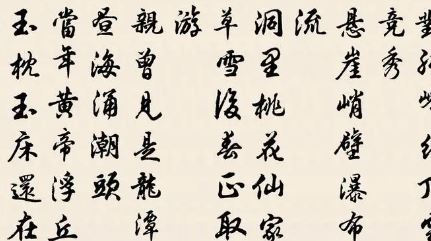 竞秀
悬崖峭壁瀑布
流
洞里桃花仙家
草雪後春正取
游
親曾见是龍潭
昼海涌潮頭
當年黄帝浮丘
玉枕玉床還在